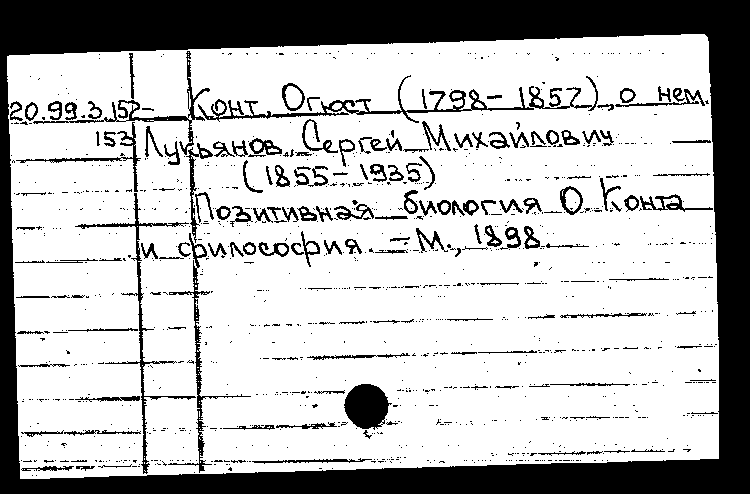 20.99.3.152- Конт, Огюст (1798-1857), о нем.
153 Лукьянов, Сергей Михайлович
(1855-1935)
Позитивная биология О. Конта
и философия. - М., 1898.